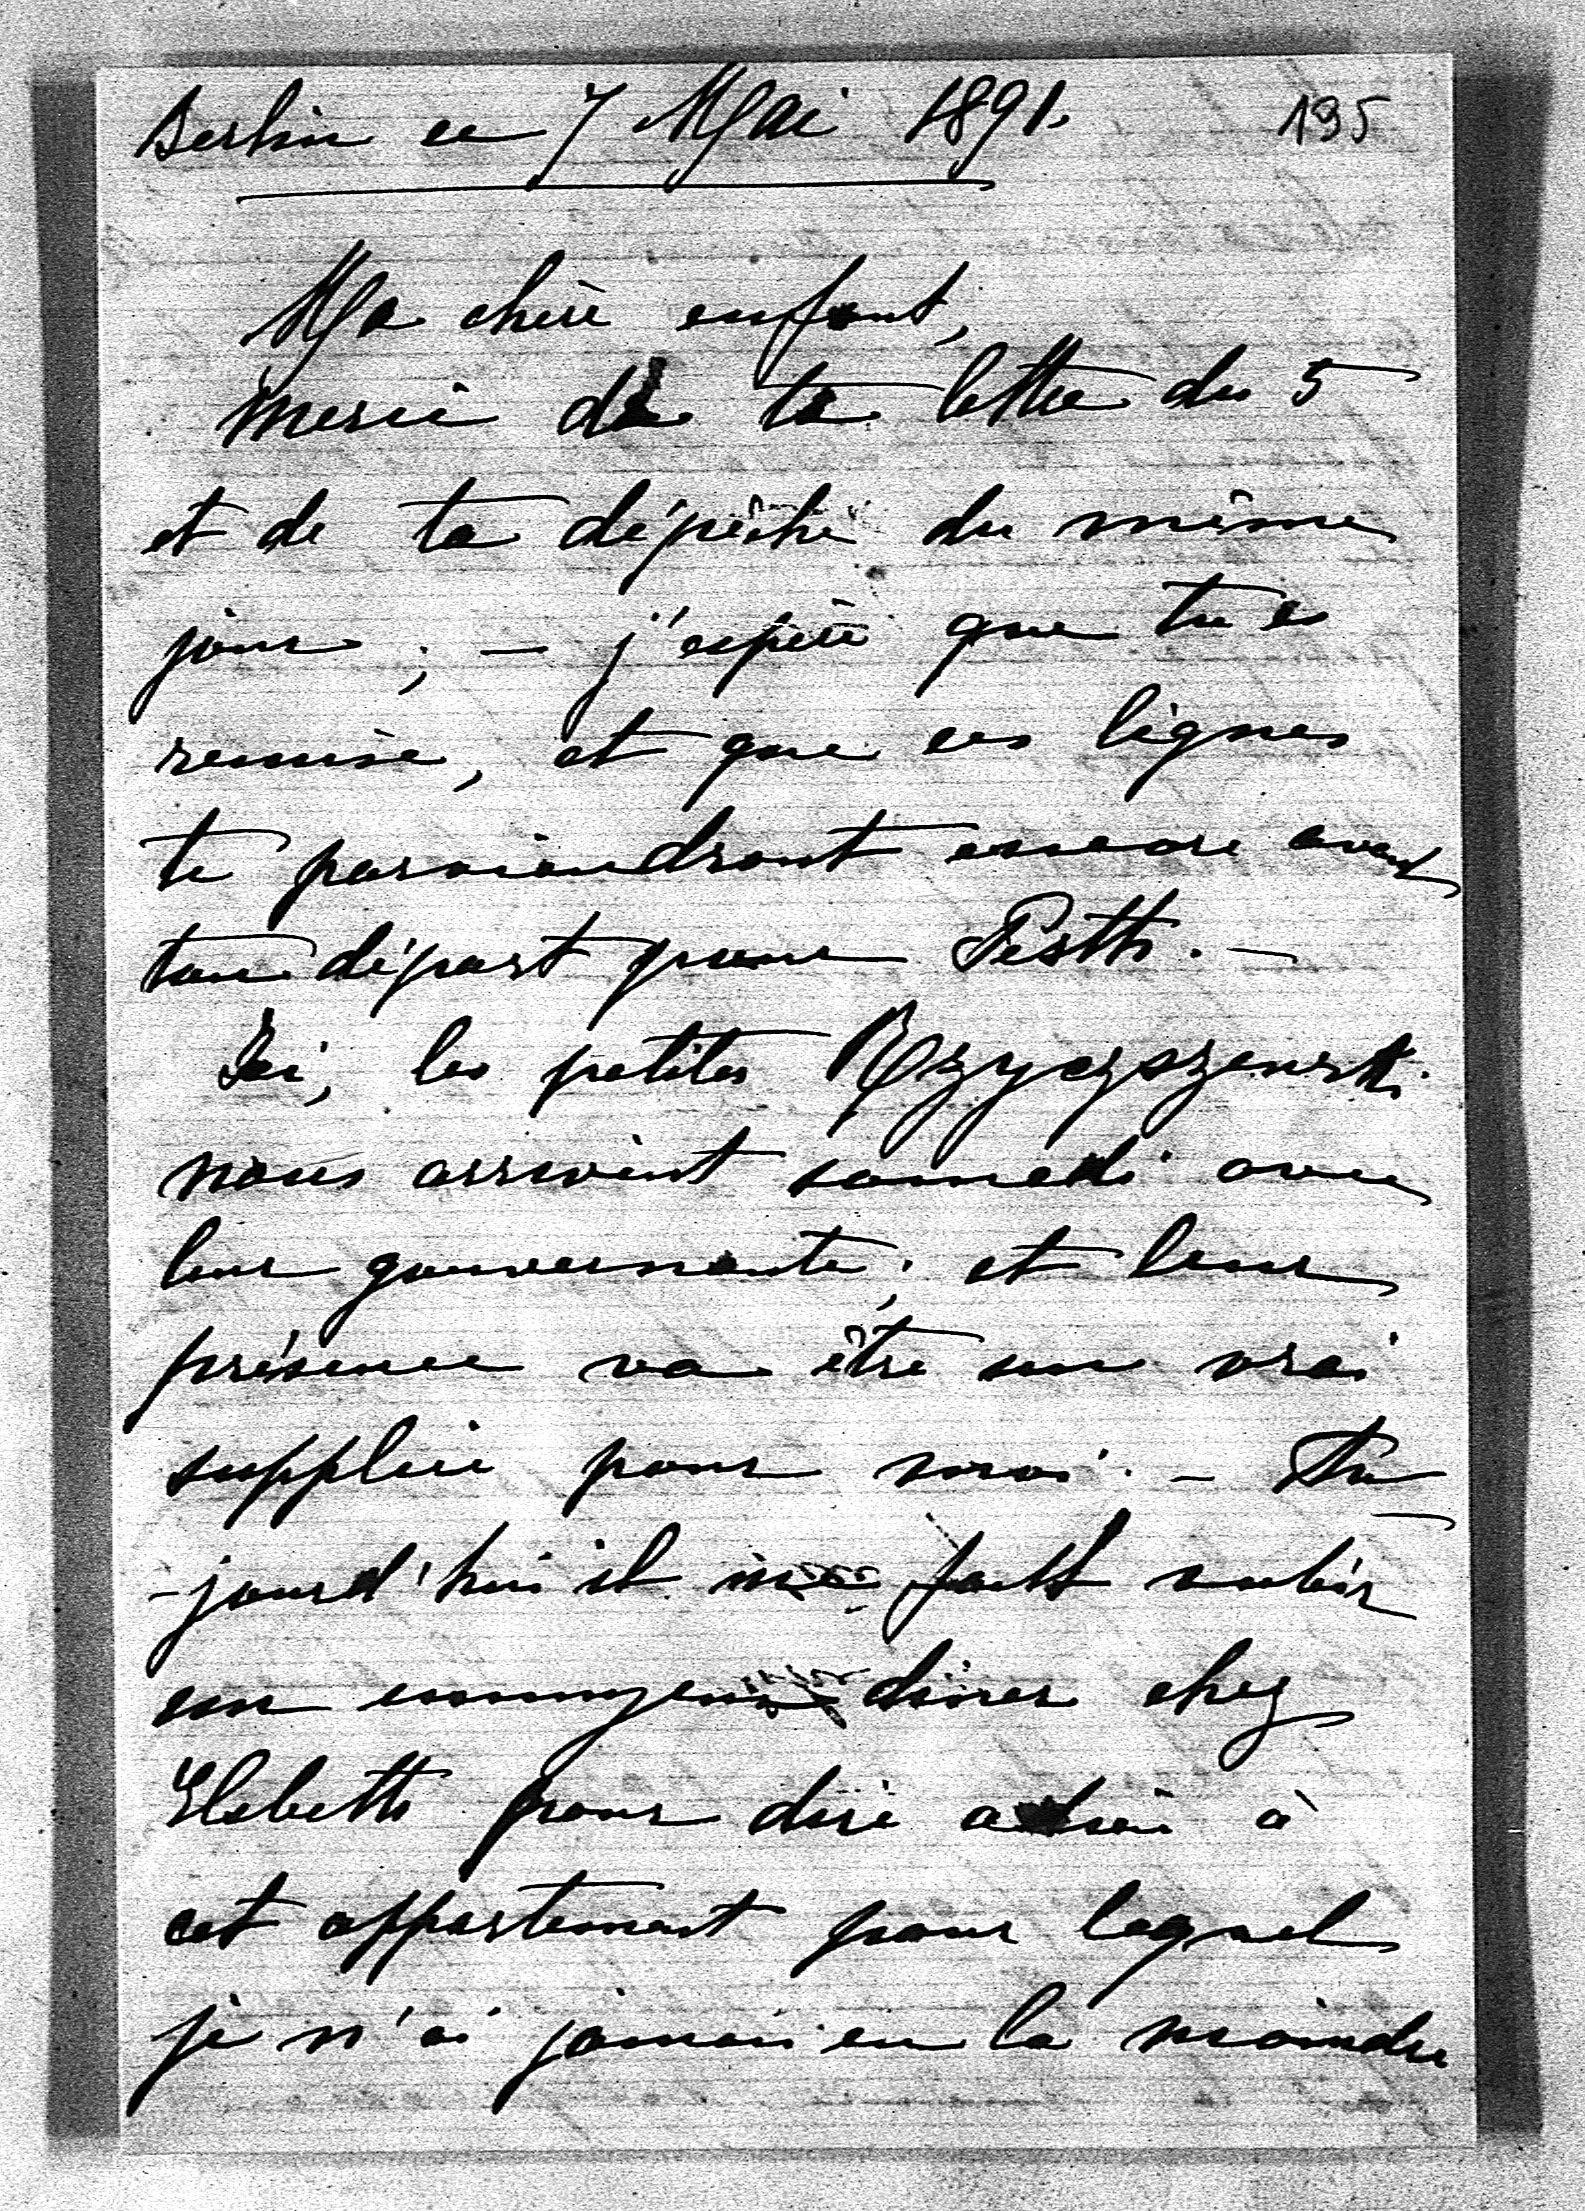 Berlin ce 7 Mai 1891. 195
Ma chère enfant,
Merci de ta lettre du 5
et de ta dépêche du même
jour ; – j'espère que tu es
remise, et que ces lignes
te parviendront encore avant
ton départ pour Pesth. –
Ici, les petites
nous arrivent samedi avec
leur gouvernante, et leur
présence va être un vrai
supplice pour moi. – Au
-jourd'hui il me faut subir
un ennuyeux dîner chez
pour dire adieu à
cet appartement pour lequel
je n'ai jamais eu la moindre